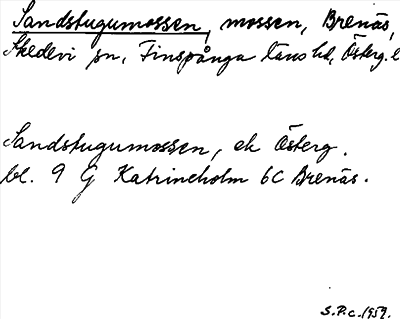 Sandstugumossen, mossen, Brenäs,
Skedevi sn, Finspånga läns hd, Österg. l
Sandstugumossen, ek Österg.
bl. 9 G Katrineholm 6c Brenäs.
S.P.c. 1959.